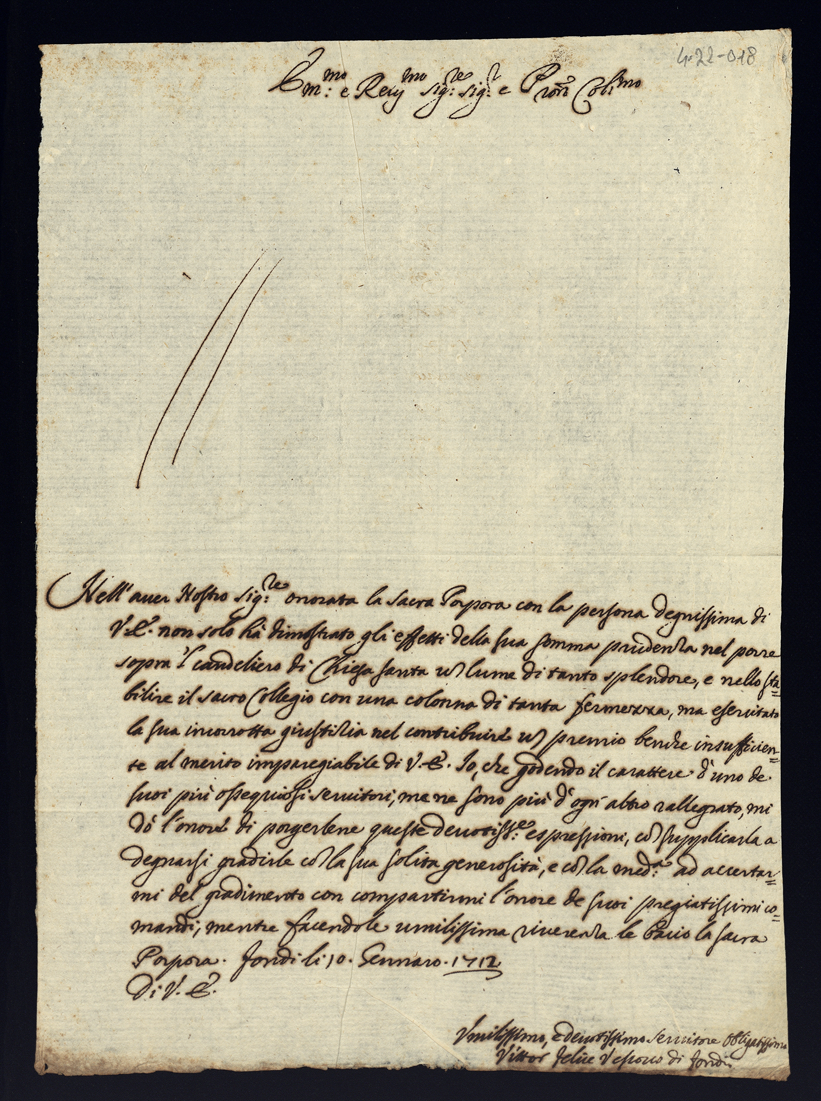 4-22-018
Em.mo: e Reu.mo Sig:re Sig:r e Pron Col.mo
Nell'auer Nostro Sig:re onorata la Sacra Porpora con la persona degnissima di
V. E. non solo hà dimostrato gli effetti della sua somma prudenza nel porre
sopra 'l candeliero di Chiesa Santa un lume di tanto splendore, e nello sta=
bilire il sacro Collegio con una colonna di tanta fermezza, ma esercitato
la sua incorrotta giustizia nel contribuire un premio benche insufficien=
te al merito impareggiabile di V. E. Io, che godendo il carattere d'uno de
suoi più ossequiosi seruitori, me ne sono più d'ogn' altro rallegrato, mi
dò l'onore di porgerlene queste deuotiss:e espressioni, con supplicarla a
degnarsi gradirle con la sua solita generosità, e con la med:a ad accertar=
mi del gradimento con compartirmi l'onore de suoi pregiatissimi co=
mandi, mentre facendole umilissima riuerenza le bacio la sacra
Porpora. Fondi li 10. Gennaro. 1712
Di V. E.
Vmilissimo, e deuotissimo seruitore obligatissimo
Vittor Felice Vescouo di Fondi